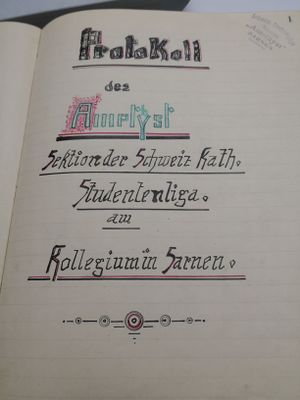 1
Protokoll
des
Ametyst
Sektion der Schweiz. Kath.
Studentenliga.
am
Kollegium in Sarnen.